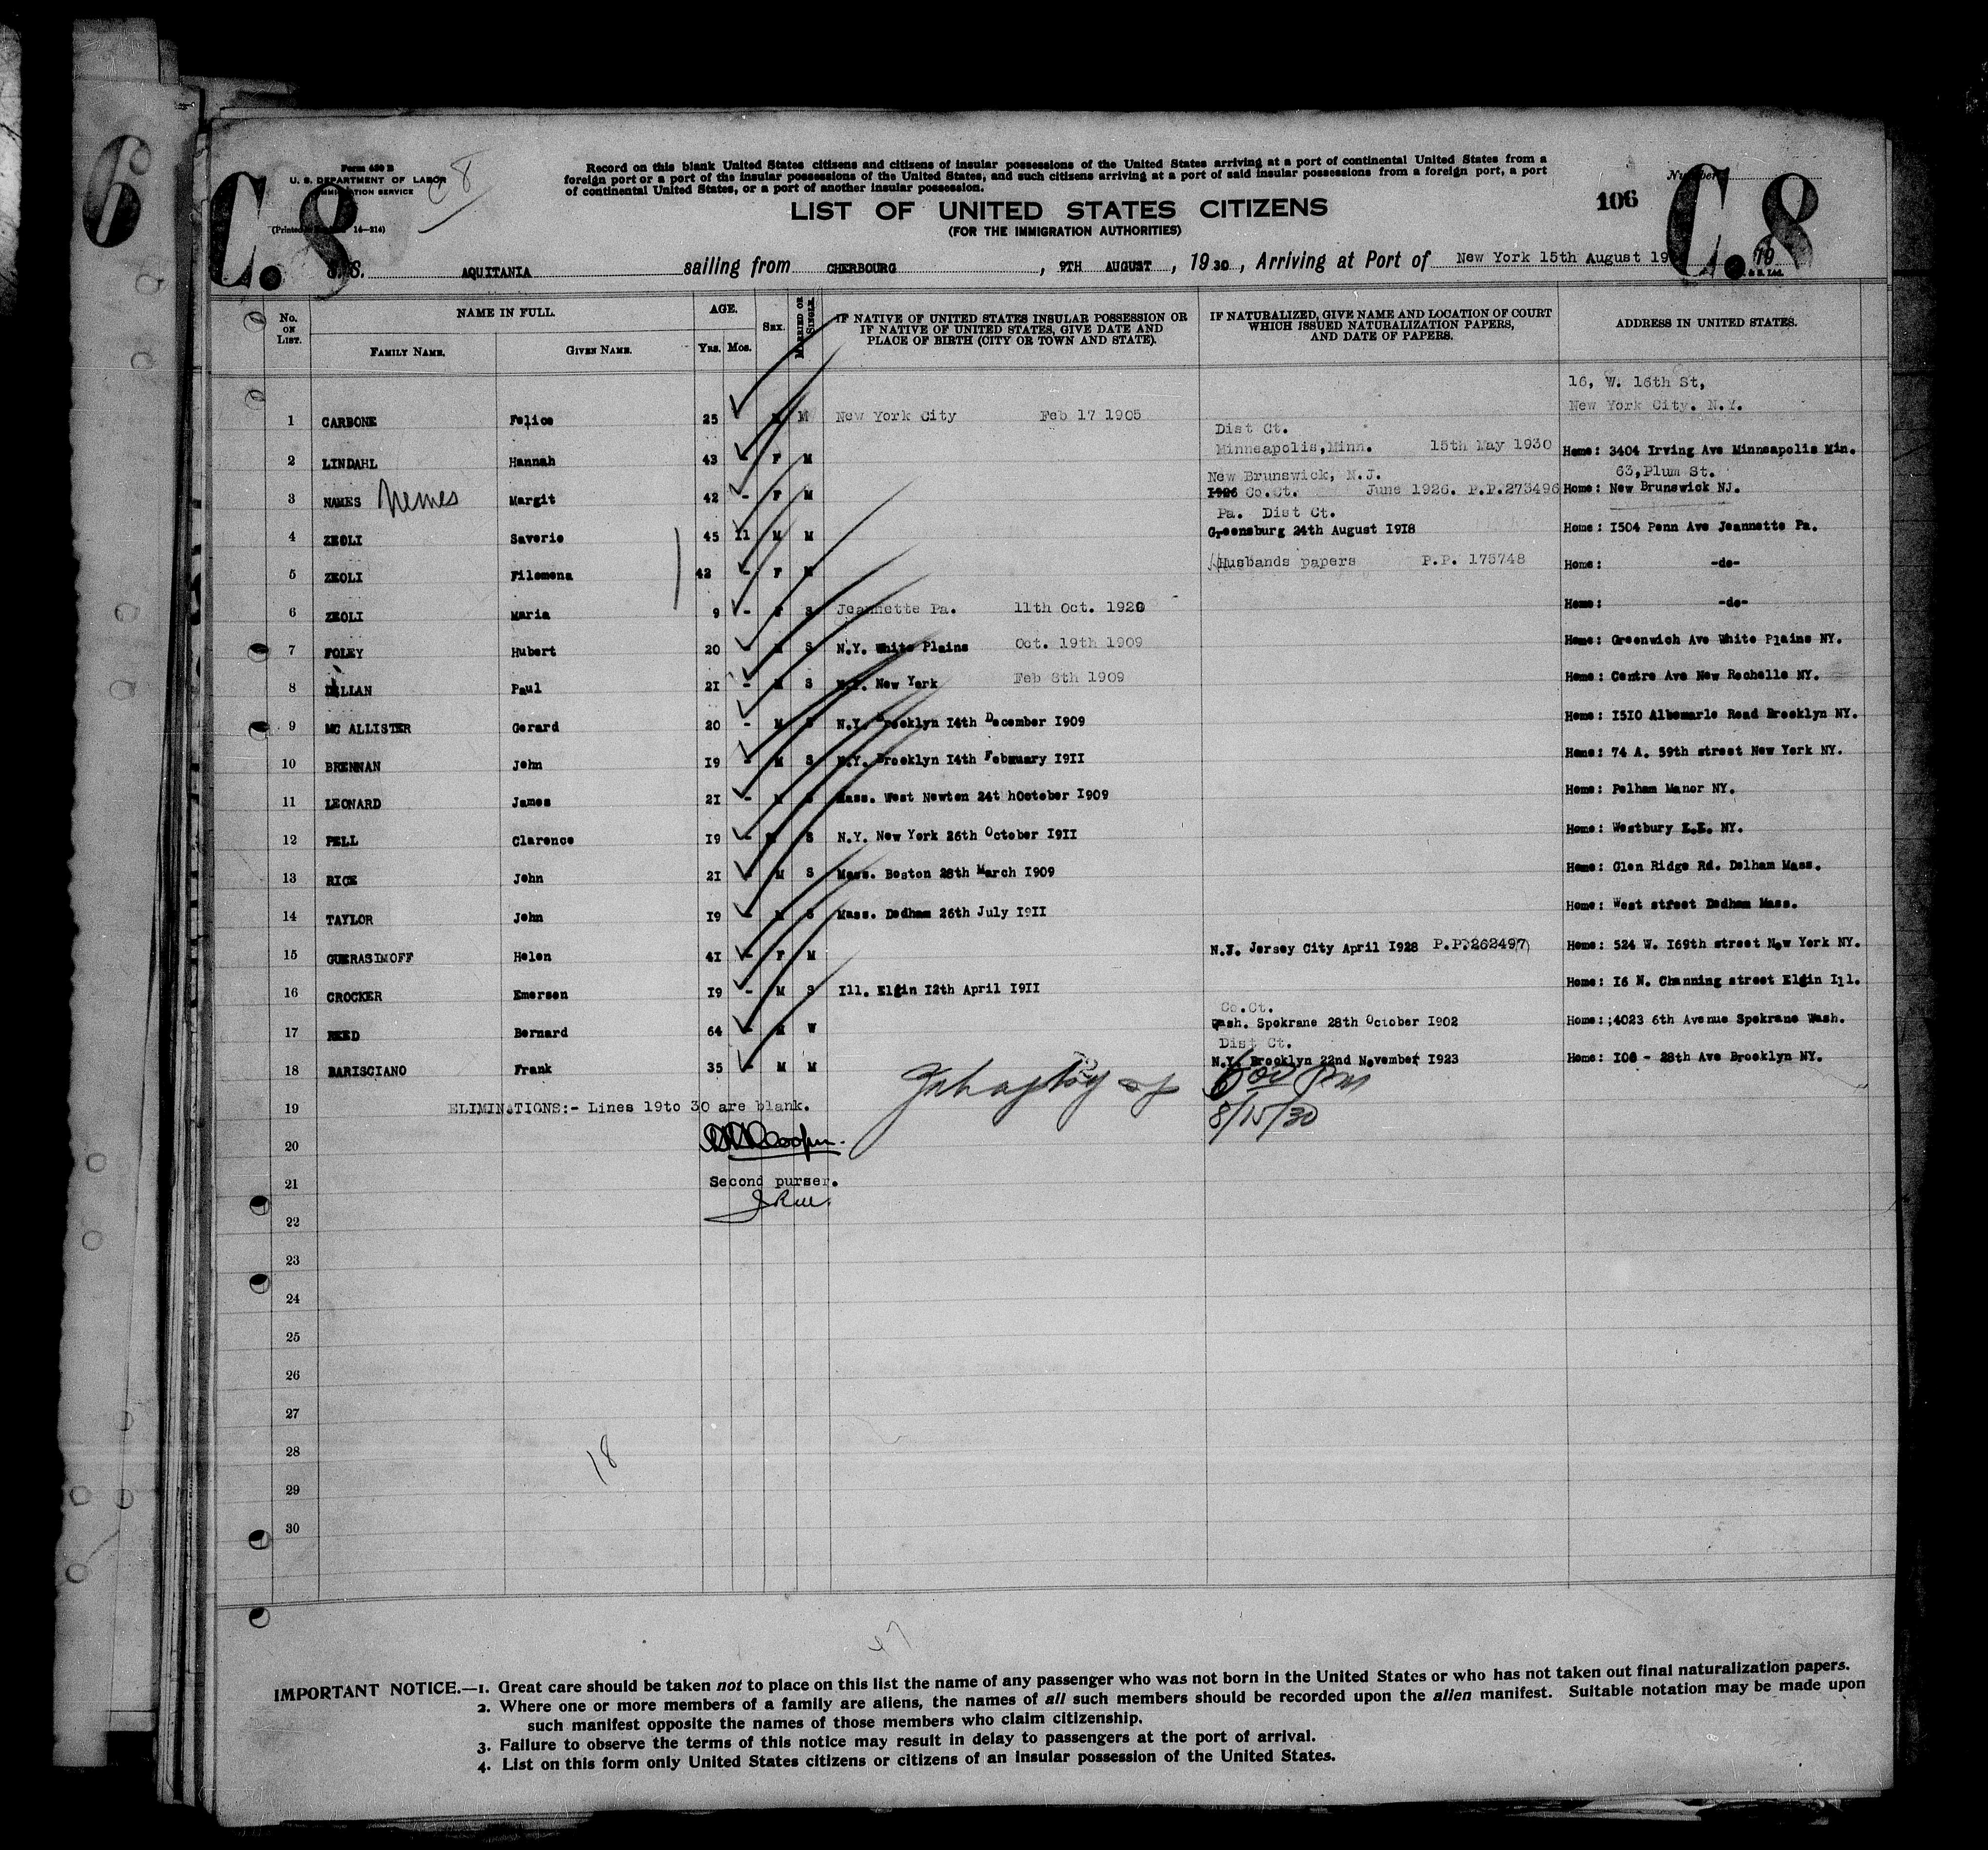 6
C.8
Form 630 B
U. S. DEPARTMENT OF LABOR
IMMIGRATION SERVICE
C 8
Record on this blank United States citizens and citizens of insular possessions of the United States arriving at a port of continental United States from a
foreign port or a port of the insular possessions of the United States, and such citizens arriving at a port of said insular possessions from a foreign port, a port
of continental United States, or a port of another insular possession.
LIST OF UNITED STATES CITIZENS
(FOR THE IMMIGRATION AUTHORITIES)
106
C.8
S.S. AQUITANIA sailing from CHERBOURG, 9TH AUGUST, 1930, Arriving at Port of New York 15th August 19
No. ON LIST. NAME IN FULL. FAMILY NAME. GIVEN NAME. AGE. YRS. MOS. SEX. MARRIED OR SINGLE. IF NATIVE OF UNITED STATES INSULAR POSSESSION OR IF NATIVE OF UNITED STATES, GIVE DATE AND PLACE OF BIRTH (CITY OR TOWN AND STATE). IF NATURALIZED, GIVE NAME AND LOCATION OF COURT WHICH ISSUED NATURALIZATION PAPERS, AND DATE OF PAPERS. ADDRESS IN UNITED STATES.
16, W. 16th St,
New York City. N.Y.
1 CARBONE Felice 25 M M New York City Feb 17 1905
Dist Ct.
2 LINDAHL Hannah 43 - F M Minneapolis,Minn. 15th May 1930 Home: 3404 Irving Ave Minneapolis Min.
New Brunswick, N.J. 63,Plum St.
3 NAMES Nemes Margit 42 - F M 1926 Co.Ct. June 1926. P.P.273496 Home: New Brunswick NJ.
Pa. Dist Ct.
4 ZEOLI Saverio 45 11 M M Greensburg 24th August 1918 Home: 1504 Penn Ave Jeannette Pa.
5 ZEOLI Filomena 42 - F M Husbands papers P.P. 175748 Home: -do-
6 ZEOLI Maria 9 - F S Jeannette Pa. 11th Oct. 1920 Home: -do-
7 FOLEY Hubert 20 M S N.Y. White Plains Oct. 19th 1909 Home: Greenwich Ave White Plains NY.
8 Paul 21 - M S N.Y. New York Feb 8th 1909 Home: Centre Ave New Rochelle NY.
9 MC ALLISTER Gerard 20 - M S N.Y. Brooklyn 14th December 1909 Home: 1510 Albemarle Road Brooklyn NY.
10 BRENNAN John 19 - M S N.Y. Brooklyn 14th February 1911 Home: 74 A. 59th street New York NY.
11 LEONARD James 21 - M S Mass. West Newton 24t hOctober 1909 Home: Pelham Manor NY.
12 PELL Clarence 19 - M S N.Y. New York 26th October 1911 Home: Westbury NY.
13 RICE John 21 - M S Mass. Boston 28th March 1909 Home: Glen Ridge Rd. Delham Mass.
14 TAYLOR John 19 - M S Mass. Dedham 26th July 1911 Home: West street Dedham Mass.
15 GUERASIMOFF Helen 41 - F M N.J. Jersey City April 1928 P.P.262497 Home: 524 W. 169th street New York NY.
16 CROCKER Emerson 19 - M S Ill. Elgin 12th April 1911 Home: 16 N. Channing street Elgin Ill.
Co.Ct.
17 REED Bernard 64 - M W Wash. Spokrane 28th October 1902 Home:;4023 6th Avenue Spokrane Wash.
Dist Ct.
18 BARISCIANO Frank 35 - M M N.Y. Brooklyn 22nd November 1923 Home: 108 - 28th Ave Brooklyn NY.
6 00 pm
19 ELIMINATIONS:- Lines 19to 30 are blank. 8/15/30
20
21 Second purser.
22
23
24
25
26
27
28
18
29
30
47
IMPORTANT NOTICE.—1. Great care should be taken not to place on this list the name of any passenger who was not born in the United States or who has not taken out final naturalization papers.
2. Where one or more members of a family are aliens, the names of all such members should be recorded upon the alien manifest. Suitable notation may be made upon
such manifest opposite the names of those members who claim citizenship.
3. Failure to observe the terms of this notice may result in delay to passengers at the port of arrival.
4. List on this form only United States citizens or citizens of an insular possession of the United States.